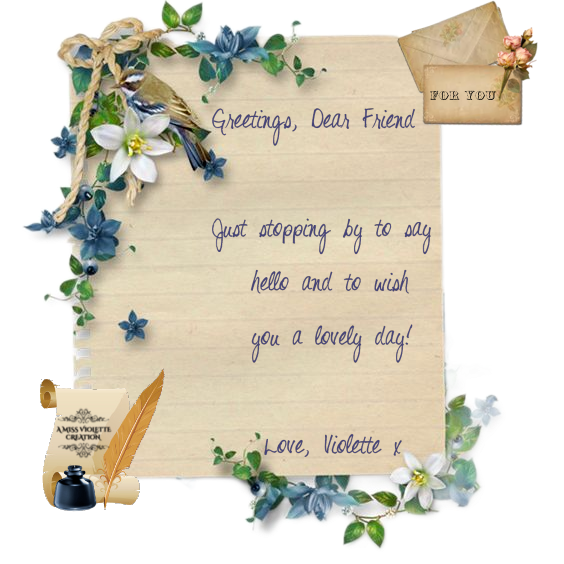 FOR YOU
Greetings, Dear Friend
Just stopping by to say
hello and to wish
you a lovely day!
Love, Violette x
A MISS VIOLETTE
CREATION